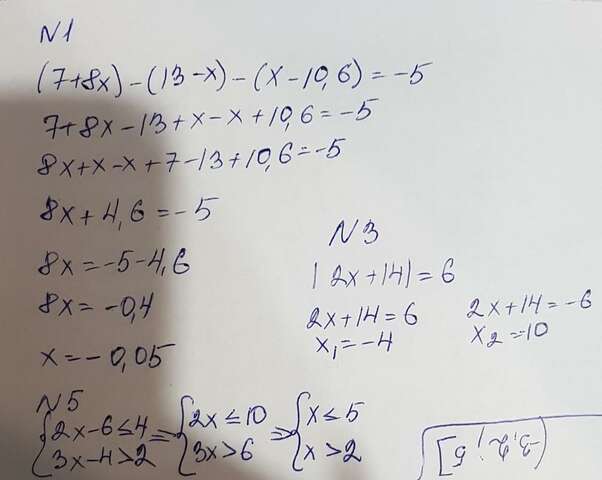 N1
(7+8x)-(13-x)-(x-10,6)=-5
7+8x-13+x-x+10,6=-5
8x+x-x+7-13+10,6=-5
8x+4,6=-5
8x=-5-4,6
8x=-0,4
x=-0,05
N3
|2x+14|=6
2x+14=6 2x+14=-6
x₁=-4 x₂=-10
N5
{2x-6≤4 ⇒ {2x≤10 ⇒ {x≤5
{3x-4>2 {3x>6 {x>2